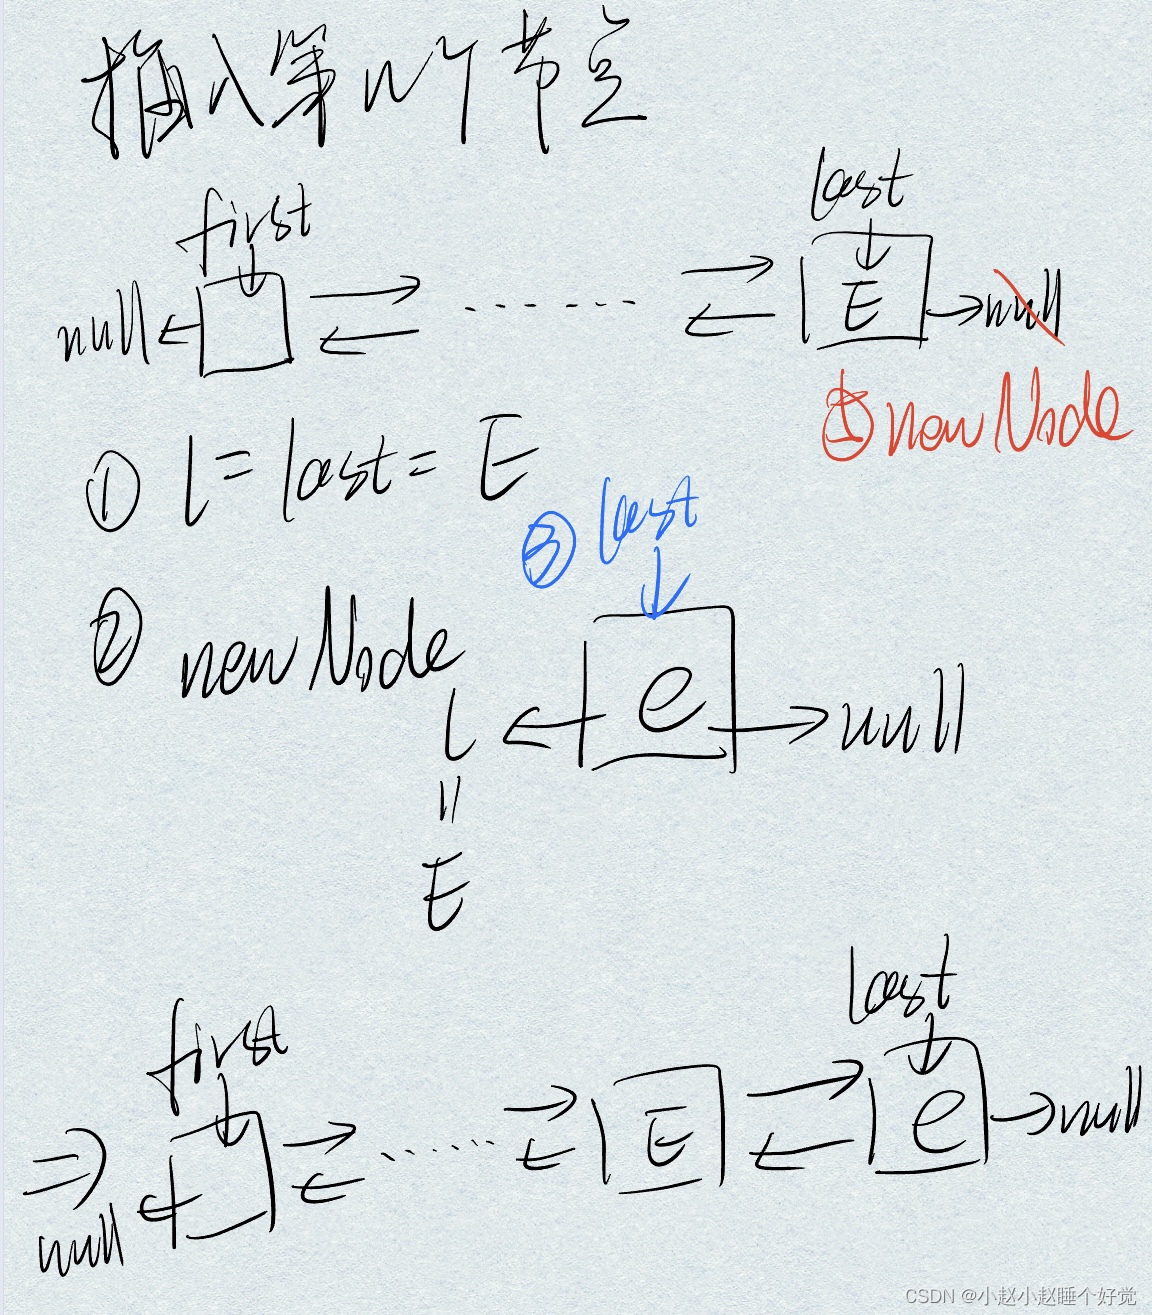 插入第n个节点
first
last
null
E
null
④ newNode
① l = last = E
③ last
② newNode
l
e
null
=
E
first
last
⇒
null
E
e
null
CSDN @小赵小赵睡个好觉